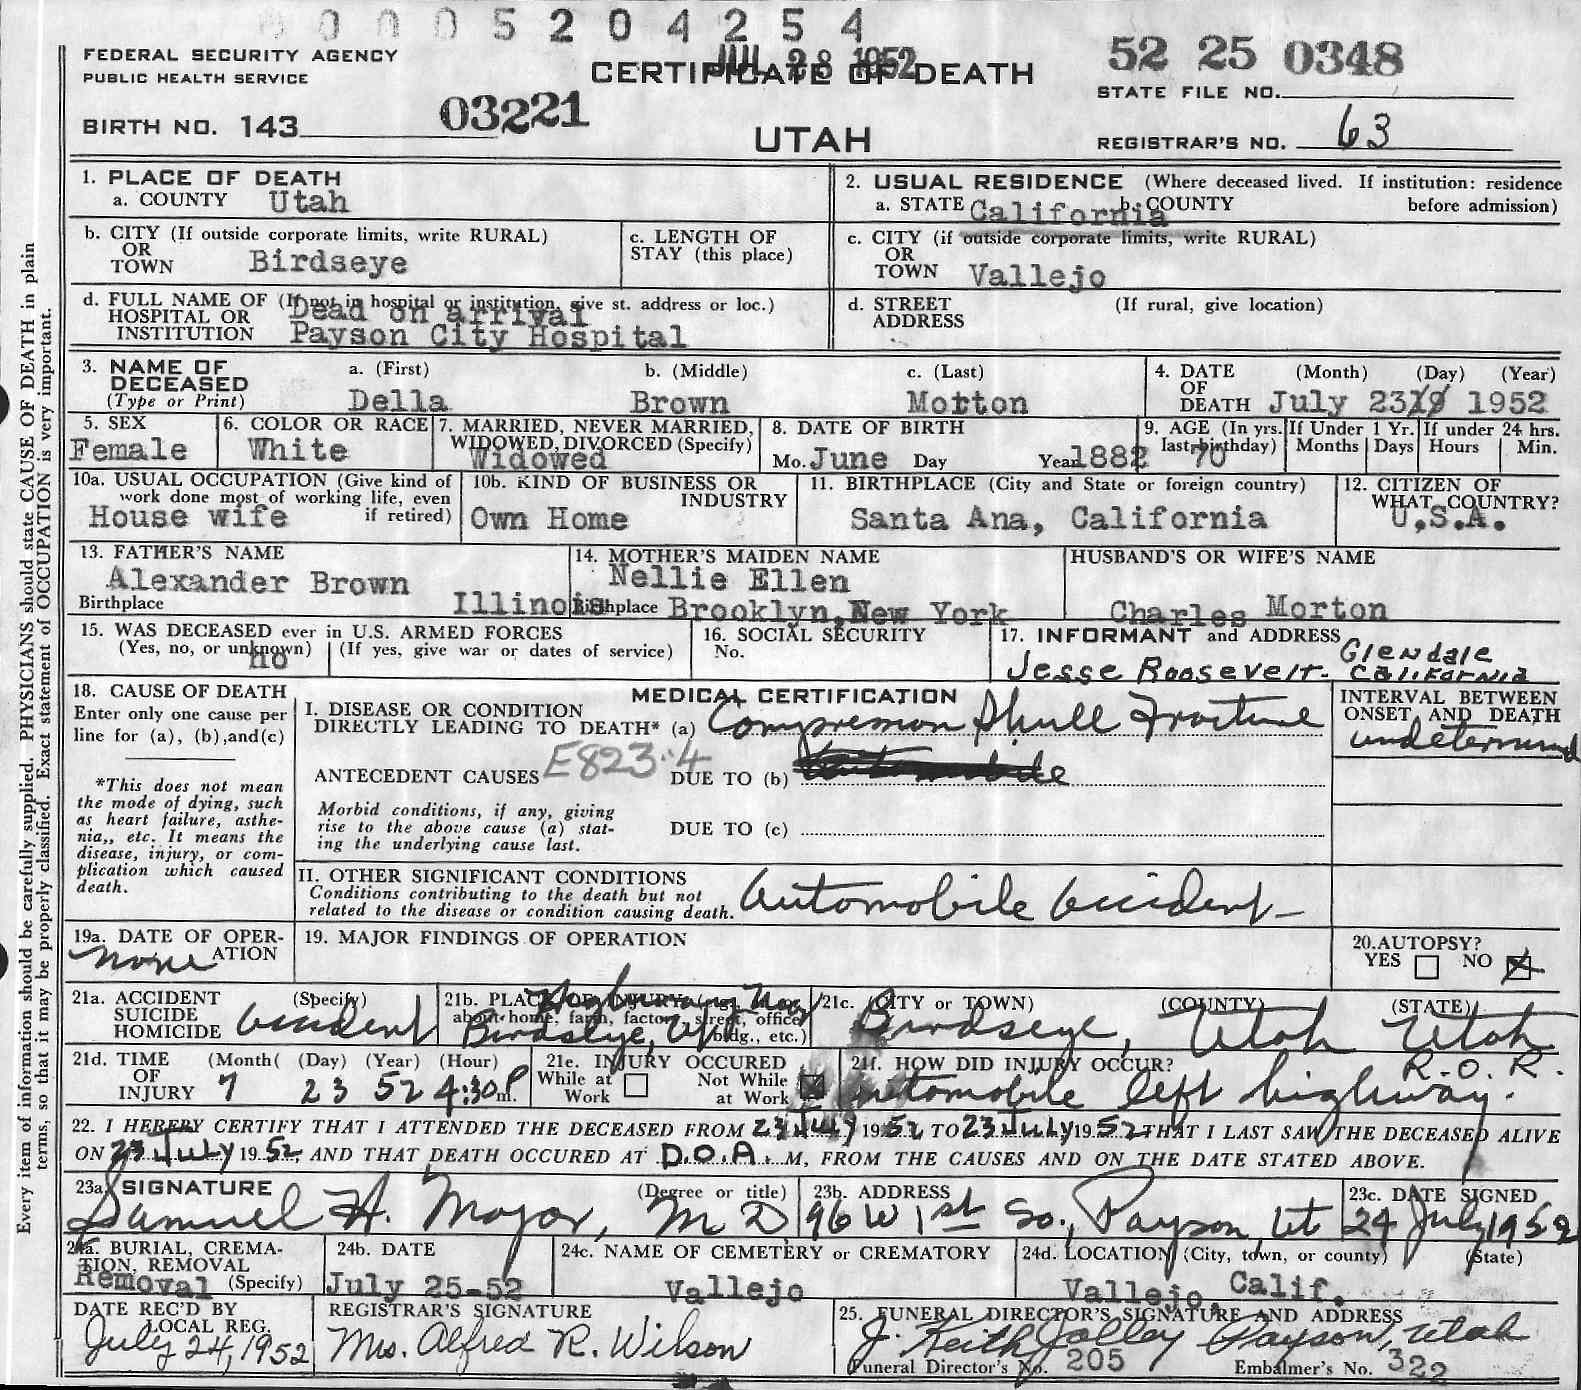 0 0 0 5 2 0 4 2 5 4
FEDERAL SECURITY AGENCY
PUBLIC HEALTH SERVICE
CERTIFICATE OF DEATH
JUL 28 1952
52 25 0348
STATE FILE NO.
BIRTH NO. 143 03221
UTAH
REGISTRAR'S NO. 63
Every item of information should be carefully supplied. PHYSICIANS should state CAUSE OF DEATH in plain
terms, so that it may be properly classified. Exact statement of OCCUPATION is very important.
1. PLACE OF DEATH
a. COUNTY Utah
2. USUAL RESIDENCE (Where deceased lived. If institution: residence
a. STATE California b. COUNTY before admission)
b. CITY (If outside corporate limits, write RURAL)
OR
TOWN Birdseye
c. LENGTH OF
STAY (this place)
c. CITY (if outside corporate limits, write RURAL)
OR
TOWN Vallejo
d. FULL NAME OF (If not in hospital or institution, give st. address or loc.)
HOSPITAL OR Dead on arrival
INSTITUTION Payson City Hospital
d. STREET (If rural, give location)
ADDRESS
3. NAME OF a. (First) b. (Middle) c. (Last)
DECEASED
(Type or Print) Della Brown Morton
4. DATE (Month) (Day) (Year)
OF
DEATH July 23 1952
5. SEX
Female
6. COLOR OR RACE
White
7. MARRIED, NEVER MARRIED,
WIDOWED, DIVORCED (Specify)
Widowed
8. DATE OF BIRTH
Mo. June Day Year 1882
9. AGE (In yrs.
last birthday) 70
If Under 1 Yr.
Months Days
If under 24 hrs.
Hours Min.
10a. USUAL OCCUPATION (Give kind of
work done most of working life, even
House wife if retired)
10b. KIND OF BUSINESS OR
INDUSTRY
Own Home
11. BIRTHPLACE (City and State or foreign country)
Santa Ana, California
12. CITIZEN OF
WHAT COUNTRY?
U.S.A.
13. FATHER'S NAME
Alexander Brown
Birthplace Illinois
14. MOTHER'S MAIDEN NAME
Nellie Ellen
Birthplace Brooklyn, New York
HUSBAND'S OR WIFE'S NAME
Charles Morton
15. WAS DECEASED ever in U.S. ARMED FORCES
(Yes, no, or unknown) (If yes, give war or dates of service)
no
16. SOCIAL SECURITY
No.
17. INFORMANT and ADDRESS Glendale
Jesse Roosevelt. California
18. CAUSE OF DEATH
Enter only one cause per
line for (a), (b),and(c)
*This does not mean
the mode of dying, such
as heart failure, asthe-
nia,, etc. It means the
disease, injury, or com-
plication which caused
death.
MEDICAL CERTIFICATION
I. DISEASE OR CONDITION
DIRECTLY LEADING TO DEATH* (a) Compression Skull Fracture
ANTECEDENT CAUSES E823.4 DUE TO (b)
Morbid conditions, if any, giving
rise to the above cause (a) stat-
ing the underlying cause last.
DUE TO (c)
INTERVAL BETWEEN
ONSET AND DEATH
undetermined
II. OTHER SIGNIFICANT CONDITIONS
Conditions contributing to the death but not
related to the disease or condition causing death. Automobile Accident
19a. DATE OF OPER-
ATION
none
19. MAJOR FINDINGS OF OPERATION
20.AUTOPSY?
YES NO X
21a. ACCIDENT (Specify)
SUICIDE
HOMICIDE Accident
21b. PLACE OF INJURY (e.g., in or
about home, farm, factory, street, office
bldg., etc.)
Highway Near
Birdseye, Ut
21c. (CITY or TOWN) (COUNTY) (STATE)
Birdseye, Utah Utah
21d. TIME (Month( (Day) (Year) (Hour)
OF
INJURY 7 23 52 4:30 P m.
21e. INJURY OCCURED
While at Work Not While at Work X
21f. HOW DID INJURY OCCUR? R.O.R.
Automobile left highway.
22. I HEREBY CERTIFY THAT I ATTENDED THE DECEASED FROM 23 July 1952 TO 23 July 1952 THAT I LAST SAW THE DECEASED ALIVE
ON 23 July 1952, AND THAT DEATH OCCURED AT D.O.A. M, FROM THE CAUSES AND ON THE DATE STATED ABOVE.
23a. SIGNATURE (Degree or title)
Samuel H. Major, M D
23b. ADDRESS
96 W 1st So., Payson, Ut
23c. DATE SIGNED
24 July 1952
24a. BURIAL, CREMA-
TION, REMOVAL
Removal (Specify)
24b. DATE
July 25-52
24c. NAME OF CEMETERY or CREMATORY
Vallejo
24d. LOCATION (City, town, or county) (State)
Vallejo, Calif.
DATE REC'D BY
LOCAL REG.
July 24, 1952
REGISTRAR'S SIGNATURE
Mrs. Alfred R. Wilson
25. FUNERAL DIRECTOR'S SIGNATURE AND ADDRESS
J. Keith Jolley Payson, Utah
Funeral Director's No. 205 Embalmer's No. 322